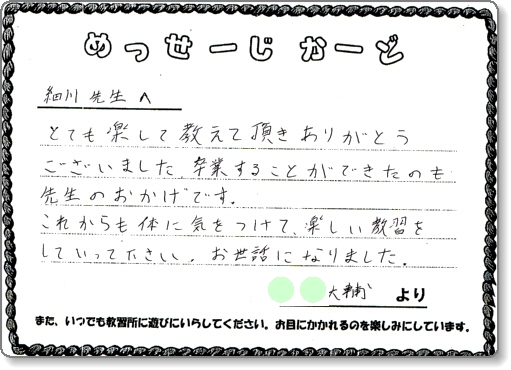 めっせーじかーど
細川先生へ
とても楽して教えて頂きありがとう
ございました。卒業することができたのも
先生のおかげです。
これからも体に気をつけて、楽しい教習を
していって下さい。お世話になりました。
大輔 より
また、いつでも教習所に遊びにいらしてください。お目にかかれるのを楽しみにしています。